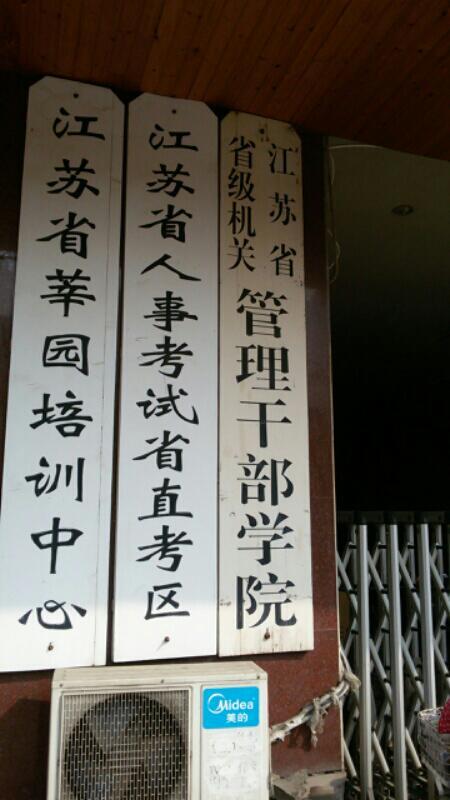 江苏省
省级机关
管理干部学院
江苏省人事考试省直考区
江苏省莘园培训中心
Midea
美的